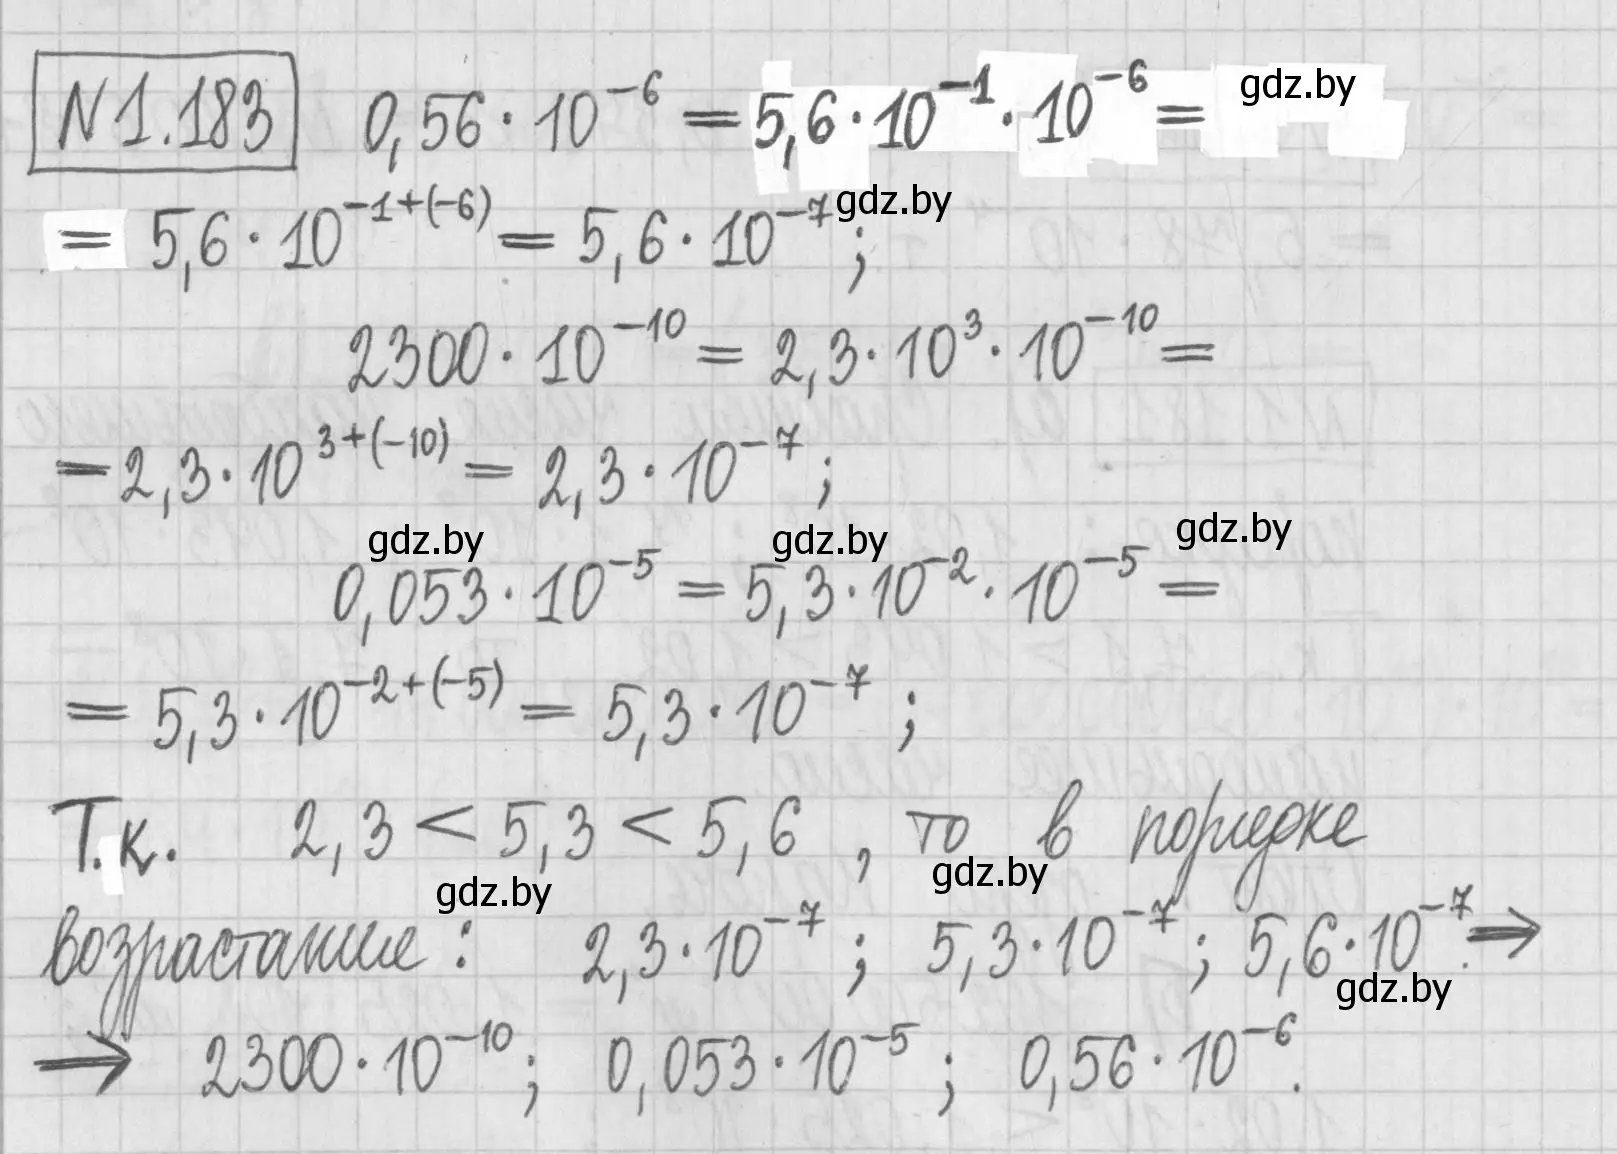 N 1.183 0,56 · 10⁻⁶ = 5,6 · 10⁻¹ · 10⁻⁶ = gdz.by
= 5,6 · 10⁻¹⁺⁽⁻⁶⁾ = 5,6 · 10⁻⁷ ; gdz.by
2300 · 10⁻¹⁰ = 2,3 · 10³ · 10⁻¹⁰ =
= 2,3 · 10³⁺⁽⁻¹⁰⁾ = 2,3 · 10⁻⁷ ;
gdz.by gdz.by gdz.by
0,053 · 10⁻⁵ = 5,3 · 10⁻² · 10⁻⁵ =
= 5,3 · 10⁻²⁺⁽⁻⁵⁾ = 5,3 · 10⁻⁷ ;
Т.к. 2,3 < 5,3 < 5,6 , то в порядке
gdz.by gdz.by
возрастание : 2,3 · 10⁻⁷ ; 5,3 · 10⁻⁷ ; 5,6 · 10⁻⁷. ⇒
gdz.by
⇒ 2300 · 10⁻¹⁰ ; 0,053 · 10⁻⁵ ; 0,56 · 10⁻⁶.